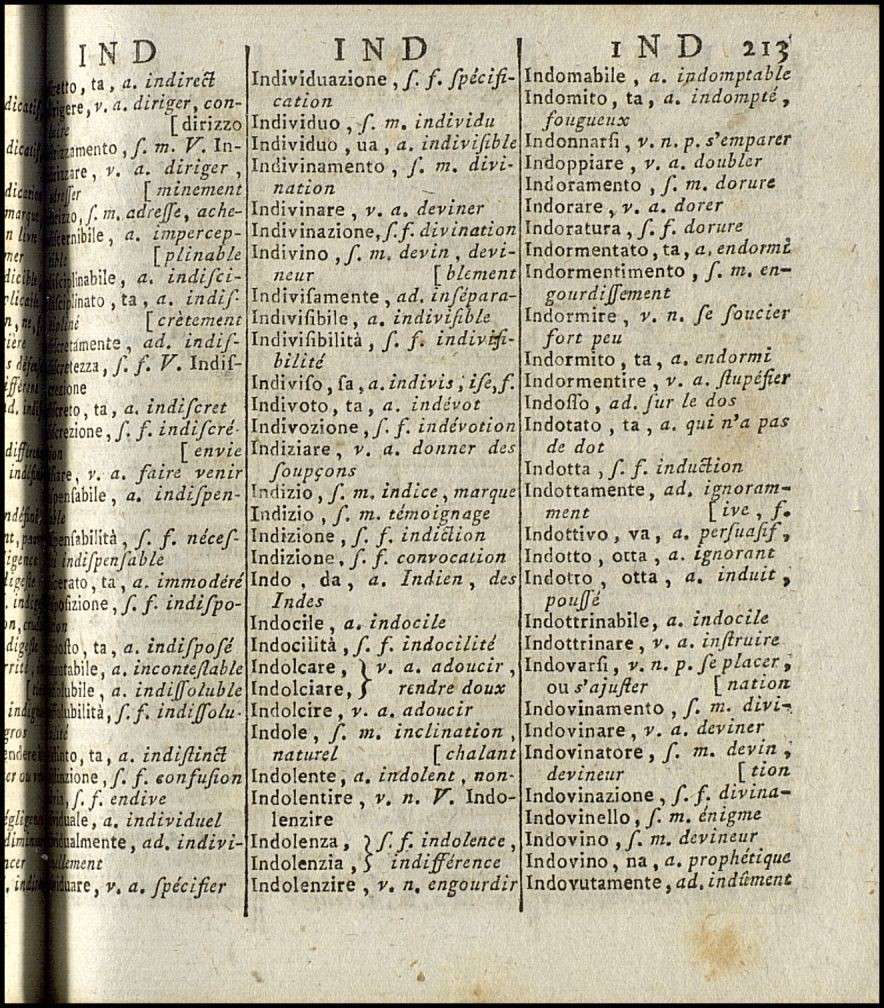 IND
etto, ta, a. indirect
igere, v. a. diriger, con-
[dirizzo
izzamento, ſ. m. V. In-
izzare, v. a. diriger,
adreſſer [minement
irizio, ſ. m. adreſſe, ache-
iſcernibile, a. impercep-
tible [plinable
iſciplinabile, a. indiſci-
iſciplinato, ta, a. indiſ-
cipliné [crètement
cretamente, ad. indiſ-
cretezza, ſ. f. V. Indiſ-
crezione
creto, ta, a. indiſcret
crezione, ſ. f. indiſcré-
tion [envie
iare, v. a. faire venir
penſabile, a. indiſpen-
able
penſabilità, ſ. f. néceſ-
indiſpenſable
cerato, ta, a. immodéré
poſizione, ſ. f. indiſpo-
tion
oſto, ta, a. indiſpoſé
utabile, a. inconteſtable
olubile, a. indiſſoluble
olubilità, ſ. f. indiſſolu-
ilité
into, ta, a. indiſtinct
inzione, ſ. f. confuſion
ia, ſ. f. endive
iduale, a. individuel
idualmente, ad. indivi-
uellement
iduare, v. a. ſpécifier
IND
Individuazione, ſ. f. ſpécifi-
cation
Individuo, ſ. m. individu
Individuo, ua, a. indiviſible
Indivinamento, ſ. m. divi-
nation
Indivinare, v. a. deviner
Indivinazione, ſ. f. divination
Indivino, ſ. m. devin, devi-
neur [blement
Indiviſamente, ad. inſépara-
Indiviſibile, a. indiviſible
Indiviſibilità, ſ. f. indiviſi-
bilité
Indiviſo, ſa, a. indivis, iſe, f.
Indivoto, ta, a. indévot
Indivozione, ſ. f. indévotion
Indiziare, v. a. donner des
ſoupçons
Indizio, ſ. m. indice, marque
Indizio, ſ. m. témoignage
Indizione, ſ. f. indiction
Indizione, ſ. f. convocation
Indo, da, a. Indien, des
Indes
Indocile, a. indocile
Indocilità, ſ. f. indocilité
Indolcare, } v. a. adoucir,
Indolciare, } rendre doux
Indolcire, v. a. adoucir
Indole, ſ. m. inclination,
naturel [chalant
Indolente, a. indolent, non-
Indolentire, v. n. V. Indo-
lenzire
Indolenza, } ſ. f. indolence,
Indolenzia, } indifférence
Indolenzire, v. n. engourdir
IND 213
Indomabile, a. indomptable
Indomito, ta, a. indompté,
fougueux
Indonnarſi, v. n. p. s'emparer
Indoppiare, v. a. doubler
Indoramento, ſ. m. dorure
Indorare, v. a. dorer
Indoratura, ſ. f. dorure
Indormentato, ta, a. endormi
Indormentimento, ſ. m. en-
gourdiſſement
Indormire, v. n. ſe ſoucier
fort peu
Indormito, ta, a. endormi
Indormentire, v. a. ſtupéfier
Indoſſo, ad. ſur le dos
Indotato, ta, a. qui n'a pas
de dot
Indotta, ſ. f. induction
Indottamente, ad. ignoram-
ment [ive, f.
Indottivo, va, a. perſuaſif,
Indotto, otta, a. ignorant
Indotto, otta, a. induit,
pouſſé
Indottrinabile, a. indocile
Indottrinare, v. a. inſtruire
Indovarſi, v. n. p. ſe placer,
ou s'ajuſter [nation
Indovinamento, ſ. m. divi-
Indovinare, v. a. deviner
Indovinatore, ſ. m. devin,
devineur [tion
Indovinazione, ſ. f. divina-
Indovinello, ſ. m. énigme
Indovino, ſ. m. devineur
Indovino, na, a. prophétique
Indovutamente, ad. indûment